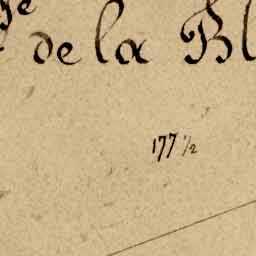 de la Bl
177 ½